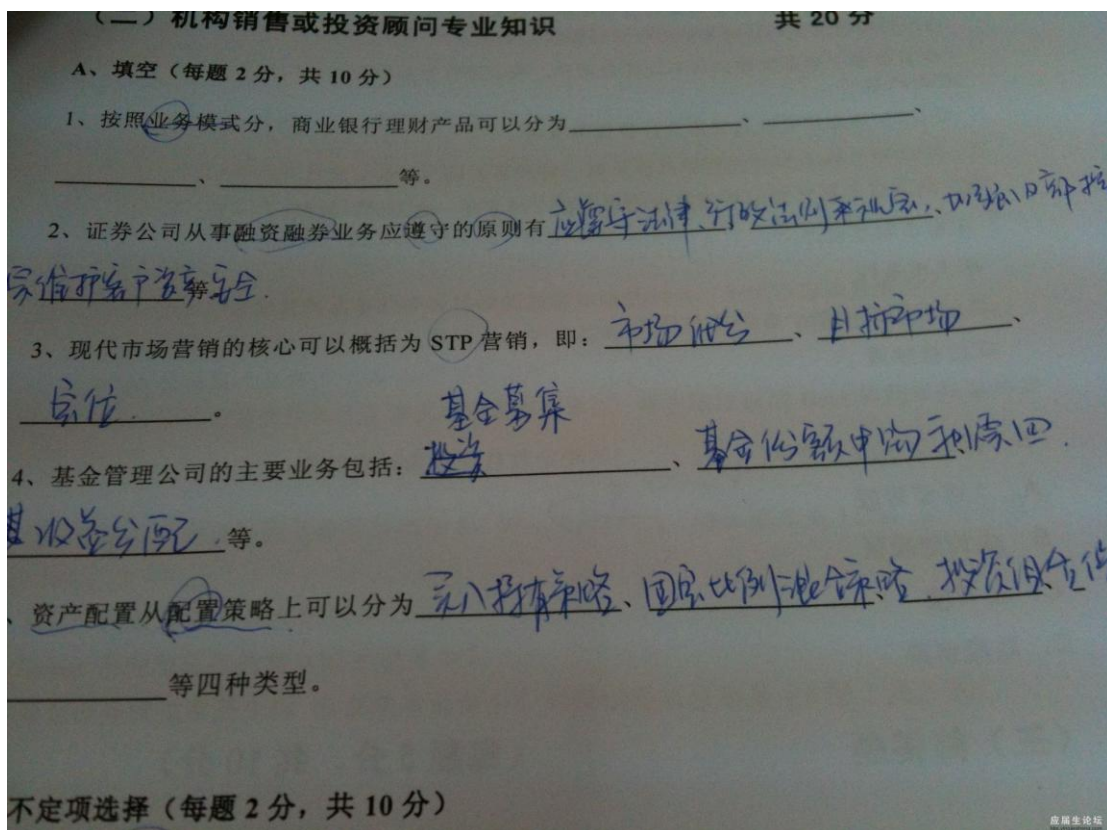 （二）机构销售或投资顾问专业知识 共 20 分
A、填空（每题 2 分，共 10 分）
1、按照业务模式分，商业银行理财产品可以分为________、________、
________、________等。
2、证券公司从事融资融券业务应遵守的原则有 应遵守法律、行政法规
维护客户资产等安全.
3、现代市场营销的核心可以概括为 STP 营销，即：市场细分、目标市场、
定位.。
基金募集
4、基金管理公司的主要业务包括：投资、基金份额申购和赎回.
收益分配.等。
、资产配置从配置策略上可以分为 买入持有策略、固定比例混合策略、投资组合
________等四种类型。
不定项选择（每题 2 分，共 10 分）
应届生论坛